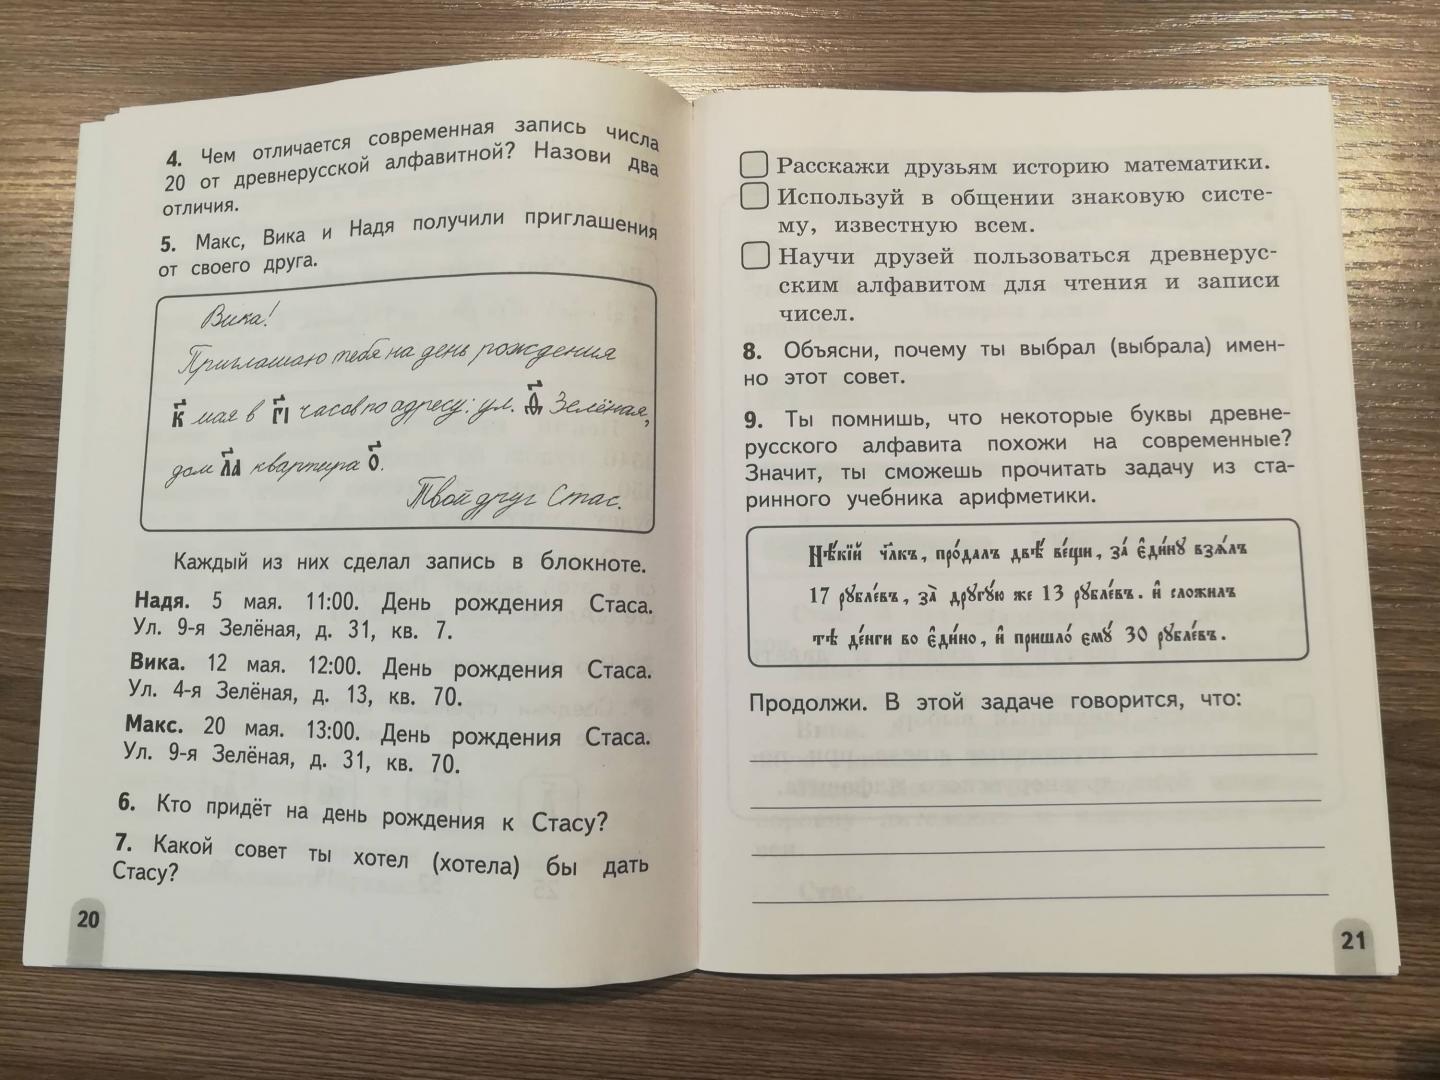 4. Чем отличается современная запись числа
20 от древнерусской алфавитной? Назови два
отличия.
5. Макс, Вика и Надя получили приглашения
от своего друга.
Вика!
Приглашаю тебя на день рождения
к҃ мая в г҃і часов по адресу: ул. ѳ҃ Зелёная,
дом л҃а квартира о҃.
Твой друг Стас.
Каждый из них сделал запись в блокноте.
Надя. 5 мая. 11:00. День рождения Стаса.
Ул. 9-я Зелёная, д. 31, кв. 7.
Вика. 12 мая. 12:00. День рождения Стаса.
Ул. 4-я Зелёная, д. 13, кв. 70.
Макс. 20 мая. 13:00. День рождения Стаса.
Ул. 9-я Зелёная, д. 31, кв. 70.
6. Кто придёт на день рождения к Стасу?
7. Какой совет ты хотел (хотела) бы дать
Стасу?
20
Расскажи друзьям историю математики.
Используй в общении знаковую систе-
му, известную всем.
Научи друзей пользоваться древнерус-
ским алфавитом для чтения и записи
чисел.
8. Объясни, почему ты выбрал (выбрала) имен-
но этот совет.
9. Ты помнишь, что некоторые буквы древне-
русского алфавита похожи на современные?
Значит, ты сможешь прочитать задачу из ста-
ринного учебника арифметики.
Нѣ́кїй чл҃къ, про́далъ двѣ̀ ве́щи, за́ є҆ди́нꙋ взѧ́лъ
17 рꙋбле́въ, за̀ дрꙋгꙋ́ю же 13 рꙋбле́въ. и҆ сложилъ
тѣ̀ де́нги во є҆ди́но, и҆ пришло́ ємꙋ́ 30 рꙋбле́въ.
Продолжи. В этой задаче говорится, что:
21